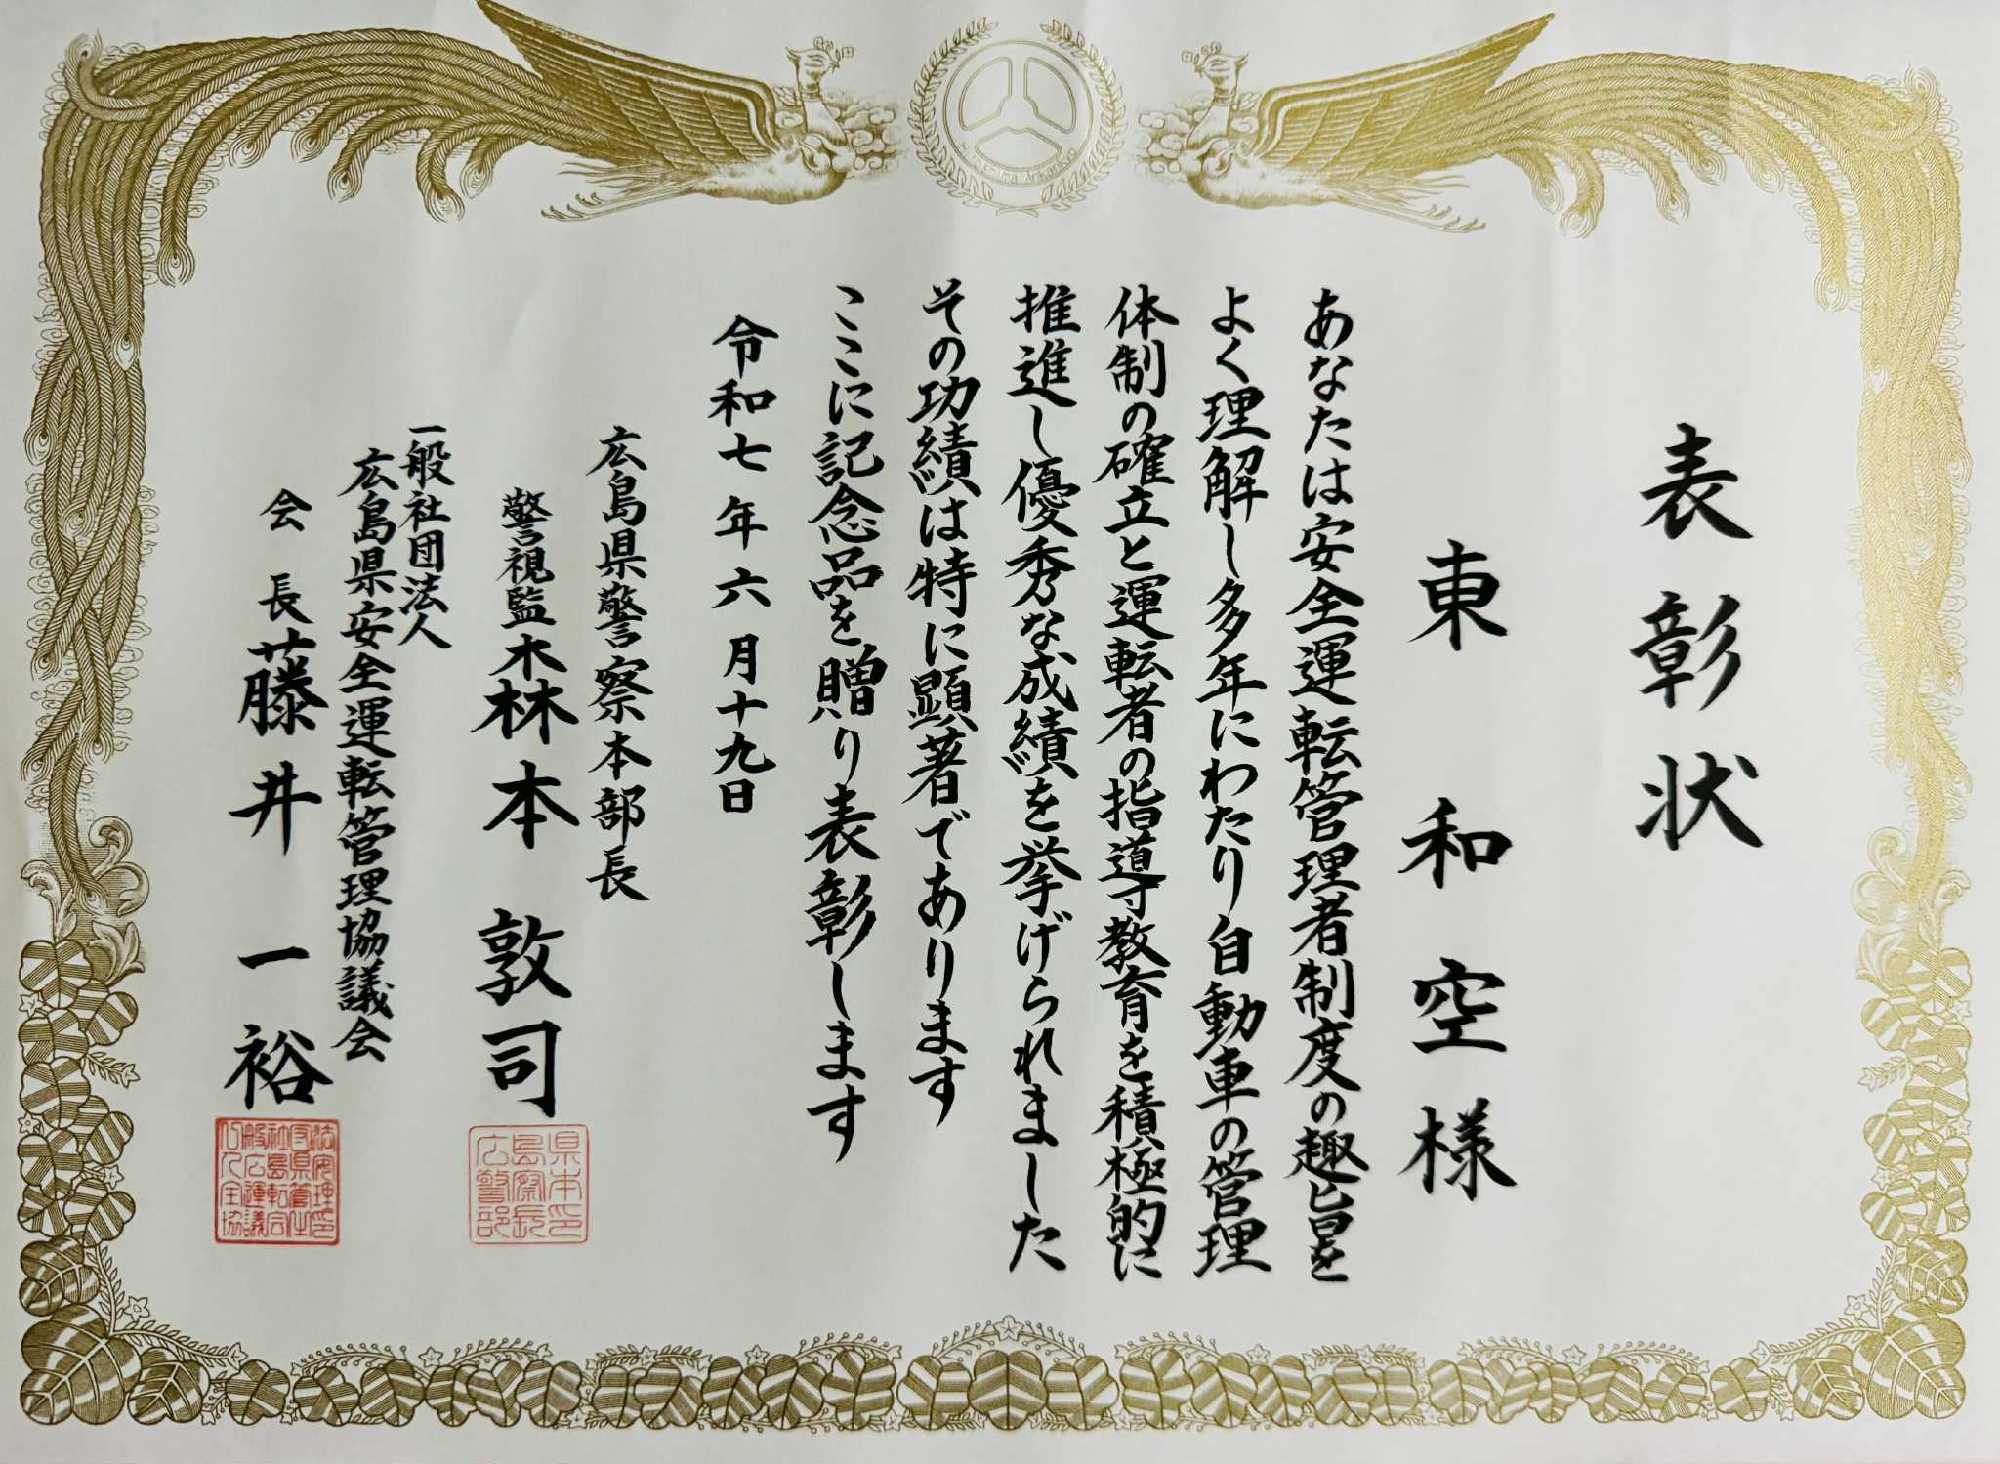 表彰状
東和空様
あなたは安全運転管理者制度の趣旨を
よく理解し多年にわたり自動車の管理
体制の確立と運転者の指導教育を積極的に
推進し優秀な成績を挙げられました
その功績は特に顕著であります
ここに記念品を贈り表彰します
令和七年六月十九日
広島県警察本部長
警視監木林本敦司
一般社団法人
広島県安全運転管理協議会
会長藤井一裕
県本印
島察長
広警部